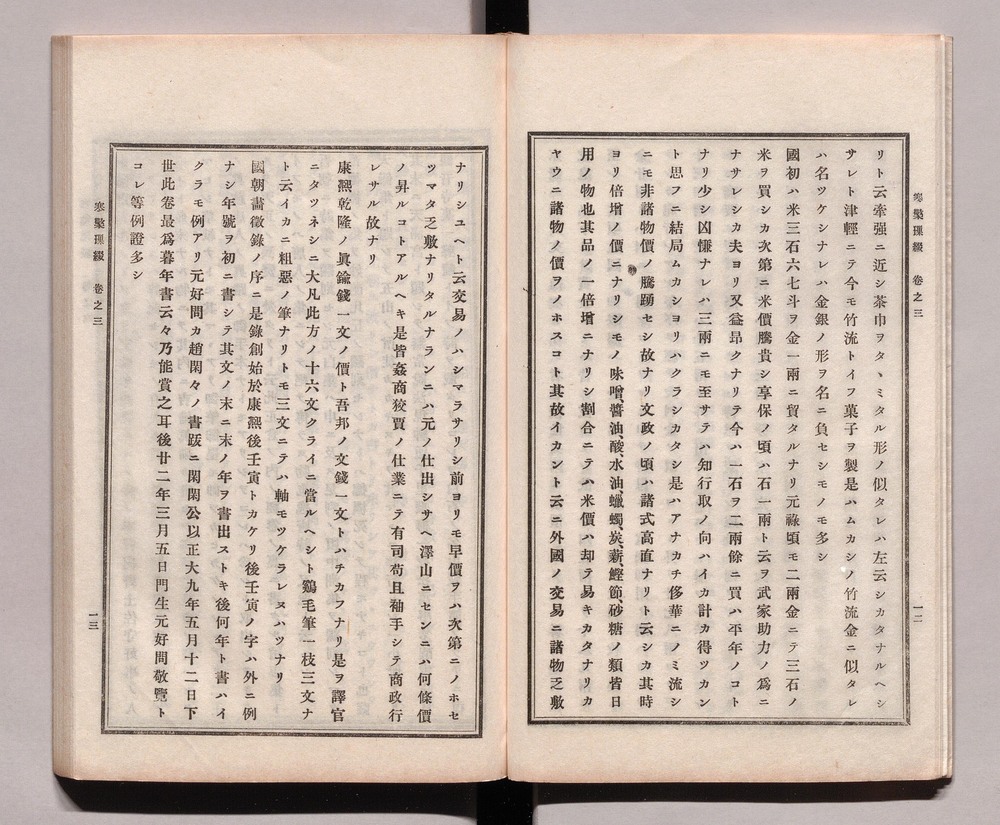 寒檠璅綴　卷之三
リト云牽强ニ近シ茶巾ヲタヽミタル形ノ似タレハ左云シカタナルヘシ
サレト津輕ニテ今モ竹流トイフ菓子ヲ製是ハムカシノ竹流金ニ似タレ
ハ名ツケシナレハ金銀ノ形ヲ名ニ負セシモノモ多シ
國初ハ米三石六七斗ヲ金一兩ニ貿タルナリ元祿頃モ二兩金ニテ三石ノ
米ヲ買シカ次第ニ米價騰貴シ享保ノ頃ハ石一兩ト云ヲ武家助力ノ爲ニ
ナサレシカ夫ヨリ又益昂クナリテ今ハ一石ヲ二兩餘ニ買ハ平年ノコト
ナリ少シ凶慊ナレハ三兩ニモ至サテハ知行取ノ向ハイカ計カ得ツカン
ト思フニ結局ムカシヨリハクラシカタシ是ハアナカチ侈華ニノミ流シ
ニモ非諸物價ノ騰踴セシ故ナリ文政ノ頃ハ諸式高直ナリト云シカ其時
ヨリ倍增ノ價ニナリシモノ味噌、醬油、酸、水油、蠟蠋、炭、薪、鰹節、砂糖ノ類皆日
用ノ物也其品ノ一倍增ニナリシ割合ニテハ米價ハ却テ易キカタナリカ
ヤウニ諸物ノ價ヲノホスコト其故イカント云ニ外國ノ交易ニ諸物乏敷
一二
ナリシユヘト云交易ノハシマラサリシ前ヨリモ早價ヲハ次第ニノホセ
ツマタ乏敷ナリタルナランニハ元ノ仕出シサヘ澤山ニセンニハ何條價
ノ昇ルコトアルヘキ是皆姦商狡賈ノ仕業ニテ有司苟且袖手シテ商政行
レサル故ナリ
康熙乾隆ノ眞鍮錢一文ノ價ト吾邦ノ文錢一文トハチカフナリ是ヲ譯官
ニタツネシニ大凡此方ノ十六文クライニ當ルヘシト鷄毛筆一枝三文ナ
ト云イカニ粗惡ノ筆ナリトモ三文ニテハ軸モツケラレヌハツナリ
國朝畫徵錄ノ序ニ是錄創始於康熙後壬寅トカケリ後壬寅ノ字ハ外ニ例
ナシ年號ヲ初ニ書シテ其文ノ末ニ末ノ年ヲ書出ストキ後何年ト書ハイ
クラモ例アリ元好問カ趙閑々ノ書跋ニ閑閑公以正大九年五月十二日下
世此卷最爲暮年書云々乃能賞之耳後廿二年三月五日門生元好問敬覽ト
コレ等例證多シ
寒檠璅綴　卷之三
一三